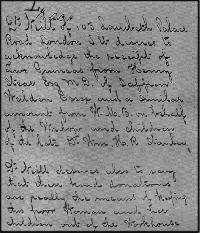 Dr Niall of 103 Lambeth Palace
Road London S.E. desires to
acknowledge the receipt of
Two Guineas from Henry
Esq M.D. of
Walden Essex and a similar
amount from W. on behalf
of the Widow and children
of the late Dr Wm H. R. Stanley
Dr Niall desires also to say
that these kind donations
are really the means of keeping
this poor Woman and her
children out of the Workhouse